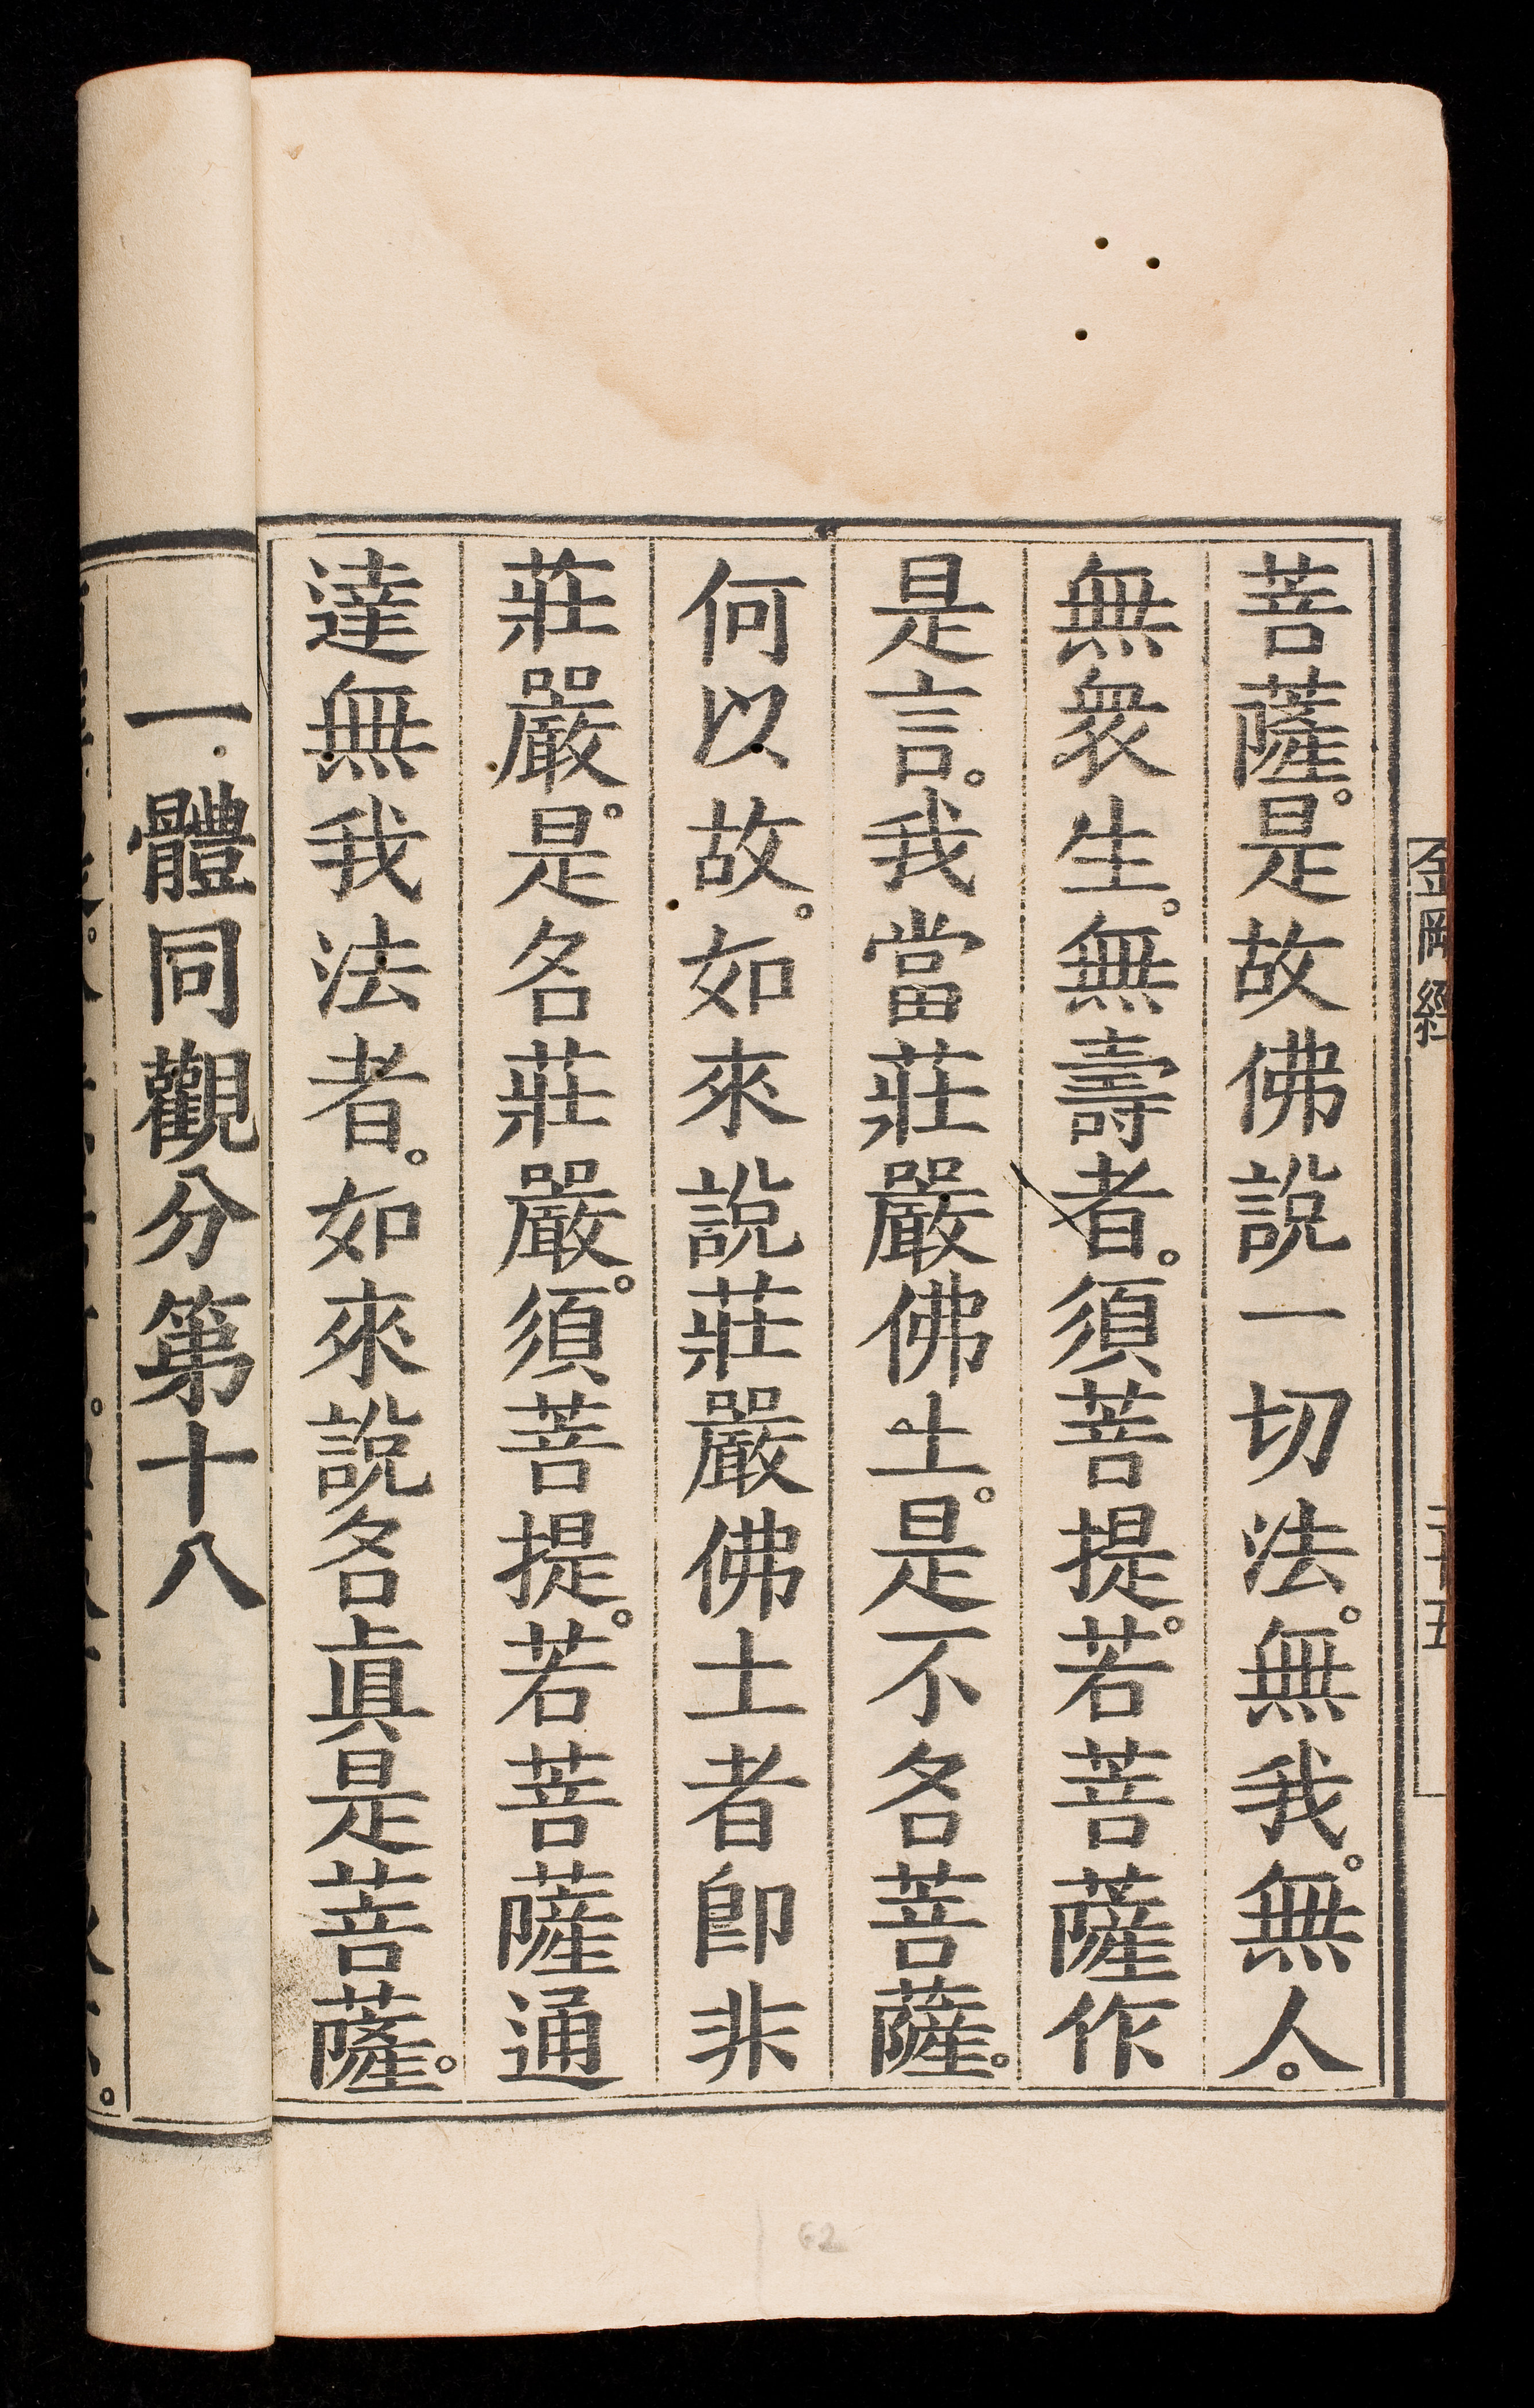 金剛經
菩薩。是故佛說一切法。無我。無人。
無衆生。無壽者。須菩提。若菩薩作
是言。我當莊嚴佛土。是不名菩薩。
何以故。如來說莊嚴佛土者卽非
莊嚴。是名莊嚴。須菩提。若菩薩通
達無我法者。如來說名眞是菩薩。
一體同觀分第十八
62